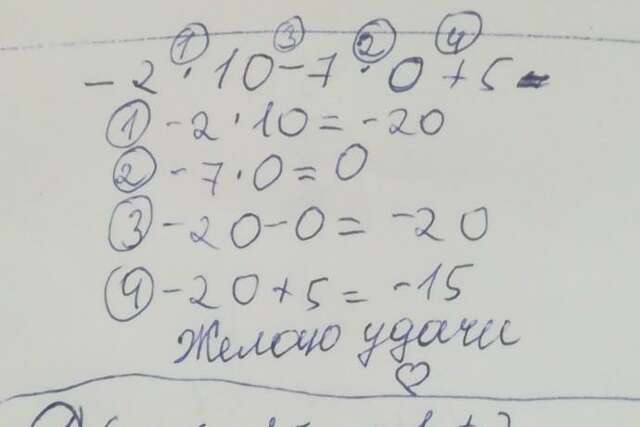 ① ③ ② ④
-2·10-7·0+5-
① -2·10=-20
② -7·0=0
③ -20-0=-20
④ -20+5=-15
Желаю удачи
♡